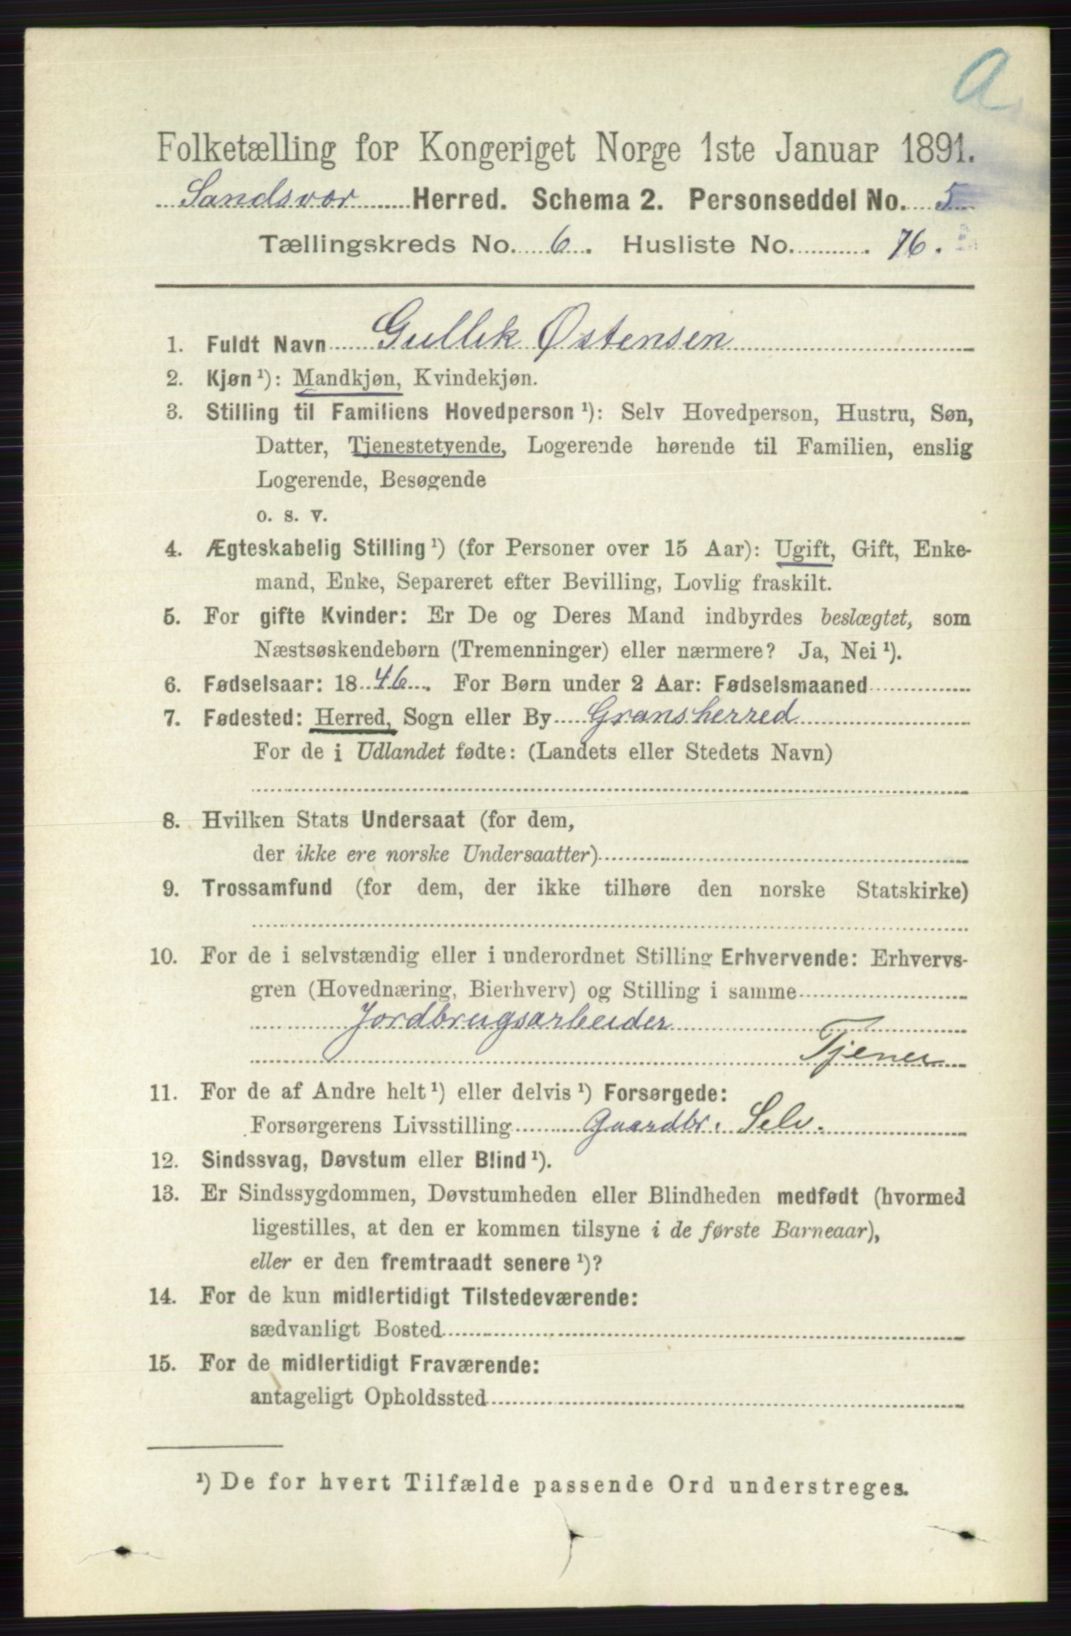 a
Folketælling for Kongeriget Norge 1ste Januar 1891.
Sandsvær Herred. Schema 2. Personseddel No. 5
Tællingskreds No. 6. Husliste No. 76.
1. Fuldt Navn Gullik Østensen
2. Kjøn ¹): Mandkjøn, Kvindekjøn.
3. Stilling til Familiens Hovedperson ¹): Selv Hovedperson, Hustru, Søn,
Datter, Tjenestetyende, Logerende hørende til Familien, enslig
Logerende, Besøgende
o. s. v.
4. Ægteskabelig Stilling ¹) (for Personer over 15 Aar): Ugift, Gift, Enke-
mand, Enke, Separeret efter Bevilling, Lovlig fraskilt.
5. For gifte Kvinder: Er De og Deres Mand indbyrdes beslægtet, som
Næstsøskendebørn (Tremenninger) eller nærmere? Ja, Nei ¹).
6. Fødselsaar: 1846. For Børn under 2 Aar: Fødselsmaaned
7. Fødested: Herred, Sogn eller By Gransherred
For de i Udlandet fødte: (Landets eller Stedets Navn)
8. Hvilken Stats Undersaat (for dem,
der ikke ere norske Undersaatter)
9. Trossamfund (for dem, der ikke tilhøre den norske Statskirke)
10. For de i selvstændig eller i underordnet Stilling Erhvervende: Erhvervs-
gren (Hovednæring, Bierhverv) og Stilling i samme
Jordbrugsarbeider
Tjener
11. For de af Andre helt ¹) eller delvis ¹) Forsørgede:
Forsørgerens Livsstilling Gaardbr. Selv.
12. Sindssvag, Døvstum eller Blind ¹).
13. Er Sindssygdommen, Døvstumheden eller Blindheden medfødt (hvormed
ligestilles, at den er kommen tilsyne i de første Barneaar),
eller er den fremtraadt senere ¹)?
14. For de kun midlertidigt Tilstedeværende:
sædvanligt Bosted
15. For de midlertidigt Fraværende:
antageligt Opholdssted
¹) De for hvert Tilfælde passende Ord understreges.